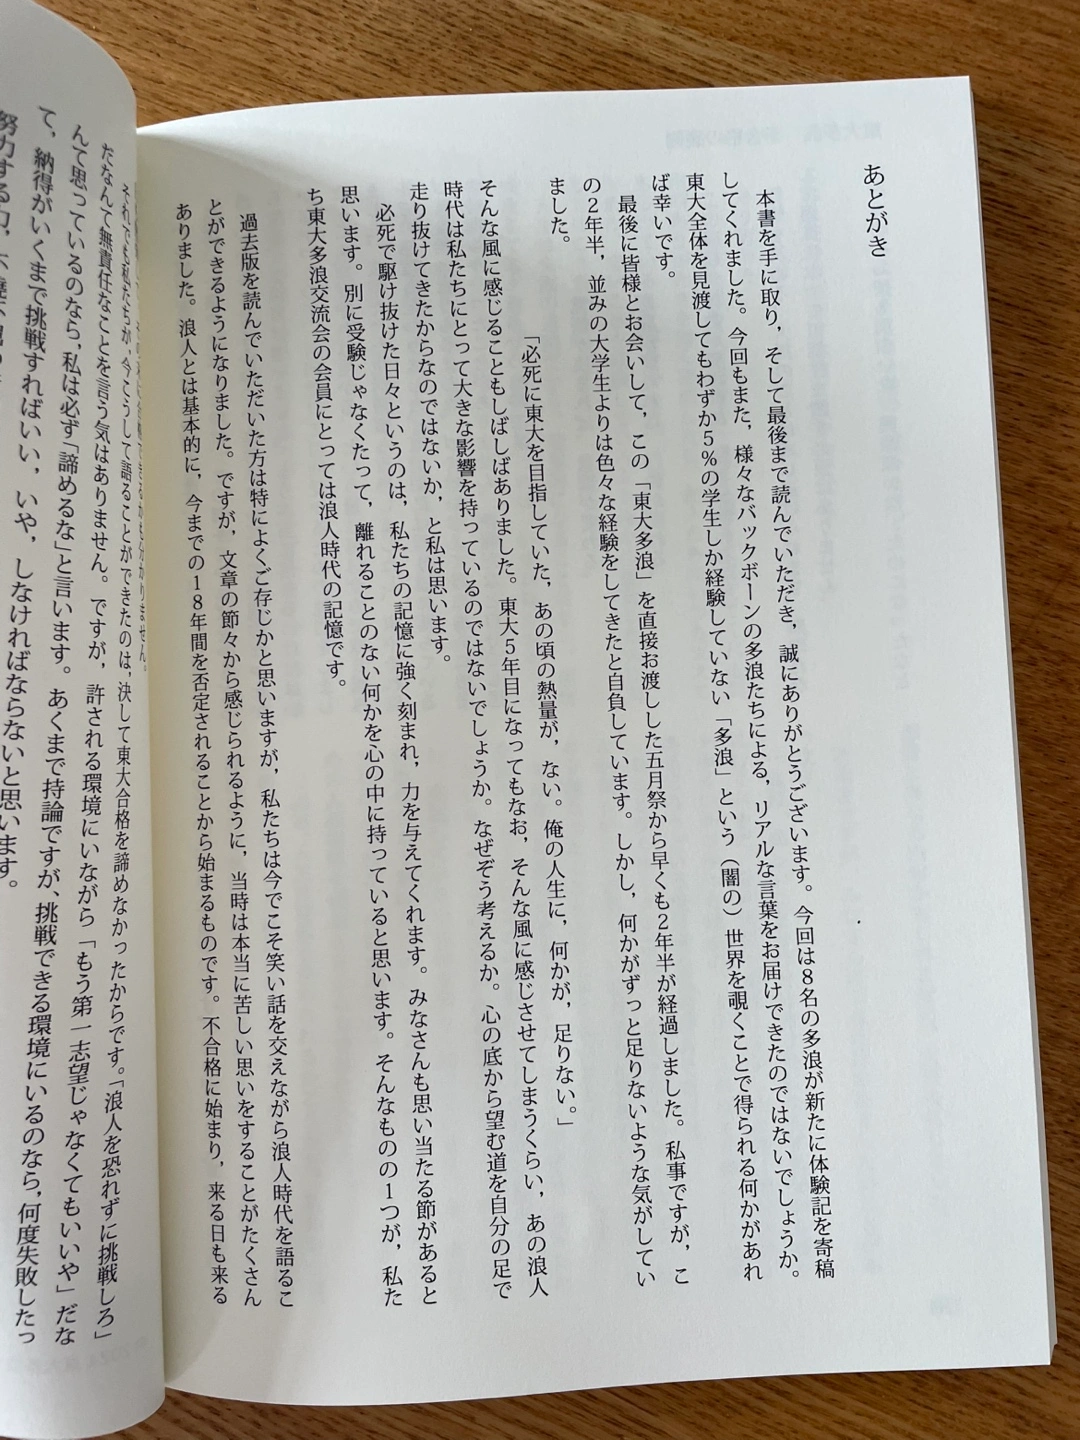 あとがき
本書を手に取り，そして最後まで読んでいただき，誠にありがとうございます。今回は８名の多浪が新たに体験記を寄稿
してくれました。今回もまた，様々なバックボーンの多浪たちによる，リアルな言葉をお届けできたのではないでしょうか。
東大全体を見渡してもわずか５％の学生しか経験していない「多浪」という（闇の）世界を覗くことで得られる何かがあれ
ば幸いです。
最後に皆様とお会いして，この「東大多浪」を直接お渡しした五月祭から早くも２年半が経過しました。私事ですが，こ
の２年半，並みの大学生よりは色々な経験をしてきたと自負しています。しかし，何かがずっと足りないような気がしてい
ました。
「必死に東大を目指していた，あの頃の熱量が，ない。俺の人生に，何かが，足りない。」
そんな風に感じることもしばしばありました。東大５年目になってもなお，そんな風に感じさせてしまうくらい，あの浪人
時代は私たちにとって大きな影響を持っているのではないでしょうか。なぜそう考えるか。心の底から望む道を自分の足で
走り抜けてきたからなのではないか，と私は思います。
必死で駆け抜けた日々というのは，私たちの記憶に強く刻まれ，力を与えてくれます。みなさんも思い当たる節があると
思います。別に受験じゃなくたって，離れることのない何かを心の中に持っていると思います。そんなものの１つが，私た
ち東大多浪交流会の会員にとっては浪人時代の記憶です。
過去版を読んでいただいた方は特によくご存じかと思いますが，私たちは今でこそ笑い話を交えながら浪人時代を語るこ
とができるようになりました。ですが，文章の節々から感じられるように，当時は本当に苦しい思いをすることがたくさん
ありました。浪人とは基本的に，今までの１８年間を否定されることから始まるものです。不合格に始まり，来る日も来る
それでも私たちが，今こうして語ることができたのは，決して東大合格を諦めなかったからです。「浪人を恐れずに挑戦しろ」
だなんて無責任なことを言う気はありません。ですが，許される環境にいながら「もう第一志望じゃなくてもいいや」だな
んて思っているのなら，私は必ず「諦めるな」と言います。あくまで持論ですが，挑戦できる環境にいるのなら，何度失敗したっ
て，納得がいくまで挑戦すればいい，いや，しなければならないと思います。
努力する